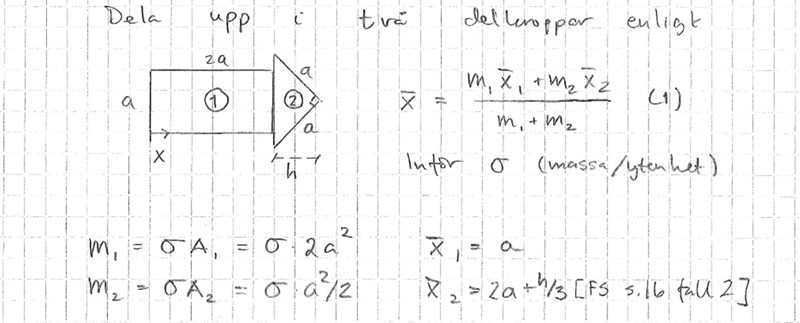 Dela upp i två delkroppar enligt
2a
a
a ① ②
a
x
h
x̄ = (m₁x̄₁ + m₂x̄₂) / (m₁ + m₂) (1)
Inför σ (massa/ytenhet)
m₁ = σA₁ = σ·2a² x̄₁ = a
m₂ = σA₂ = σ·a²/2 x̄₂ = 2a + h/3 [FS s.16 fall 2]